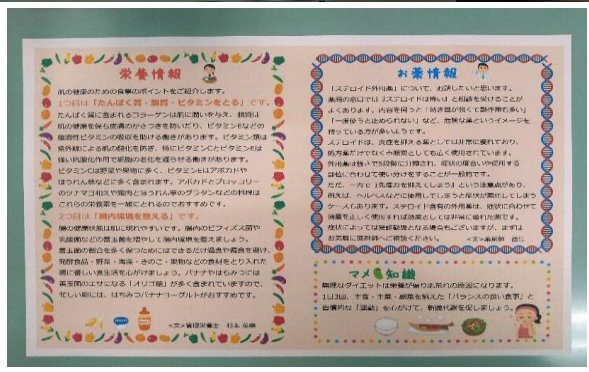 栄養情報
肌の健康のための食事のポイントをご紹介します。
1つ目は「たんぱく質・脂質・ビタミンをとる」です。
たんぱく質に含まれるコラーゲンは肌に潤いを与え、脂質は
肌の健康を保ち皮膚のかさつきを防いだり、ビタミンEなどの
脂溶性ビタミンの吸収を助ける働きがあります。ビタミン類は
紫外線による肌の酸化を防ぎ、特にビタミンCとビタミンEは
強い抗酸化作用で細胞の老化を遅らせる働きがあります。
ビタミンCは野菜や果物に多く、ビタミンEはアボカドや
ほうれん草などに多く含まれます。アボカドとブロッコリー
のツナマヨ和えや鶏肉とほうれん草のグラタンなどの料理は
これらの栄養素を一緒にとれるのでおすすめです。
2つ目は「腸内環境を整える」です。
腸の健康状態は肌に現れやすいです。腸内のビフィズス菌や
乳酸菌などの善玉菌を増やして腸内環境を整えましょう。
善玉菌の割合を多く保つためにはできるだけ過食や偏食を避け、
発酵食品・野菜・海藻・きのこ・果物などの食材をとり入れた
腸に優しい食生活を心がけましょう。バナナやはちみつには
善玉菌のエサになる「オリゴ糖」が多く含まれていますので、
忙しい朝には、はちみつバナナヨーグルトがおすすめです。
<文>管理栄養士
お薬情報
「ステロイド外用薬」について、お話したいと思います。
薬局の窓口では「ステロイドは怖い」と相談を受けることが
よくあります。内容を伺うと「効き目が強くて副作用も多い」
「一度使うと止められない」など、危険な薬というイメージを
持っている方が多いようです。
ステロイドは、炎症を抑える薬としては非常に優れており、
処方薬だけでなく市販薬としても広く使用されています。
外用薬は強さで5段階に分類され、症状の度合いや使用する
部位に合わせて使い分けをすることが一般的です。
ただ、一方で「免疫力を抑えてしまう」という注意点があり、
例えば、ヘルペスなどに使用してしまうと症状が悪化してしまう
ケースもあります。ステロイド含有の外用薬は、症状に合わせて
適量を正しく使用すれば効果としては非常に優れた薬です。
症状によっては受診勧奨となる場合もございますが、まずは
お気軽に薬剤師へご相談ください。
<文>薬剤師
マメ知識
無理なダイエットは栄養が偏りお肌荒れの原因になります。
1日3回、主食・主菜・副菜を揃えた「バランスの良い食事」と
習慣的な「運動」を心がけて、新陳代謝を促しましょう。